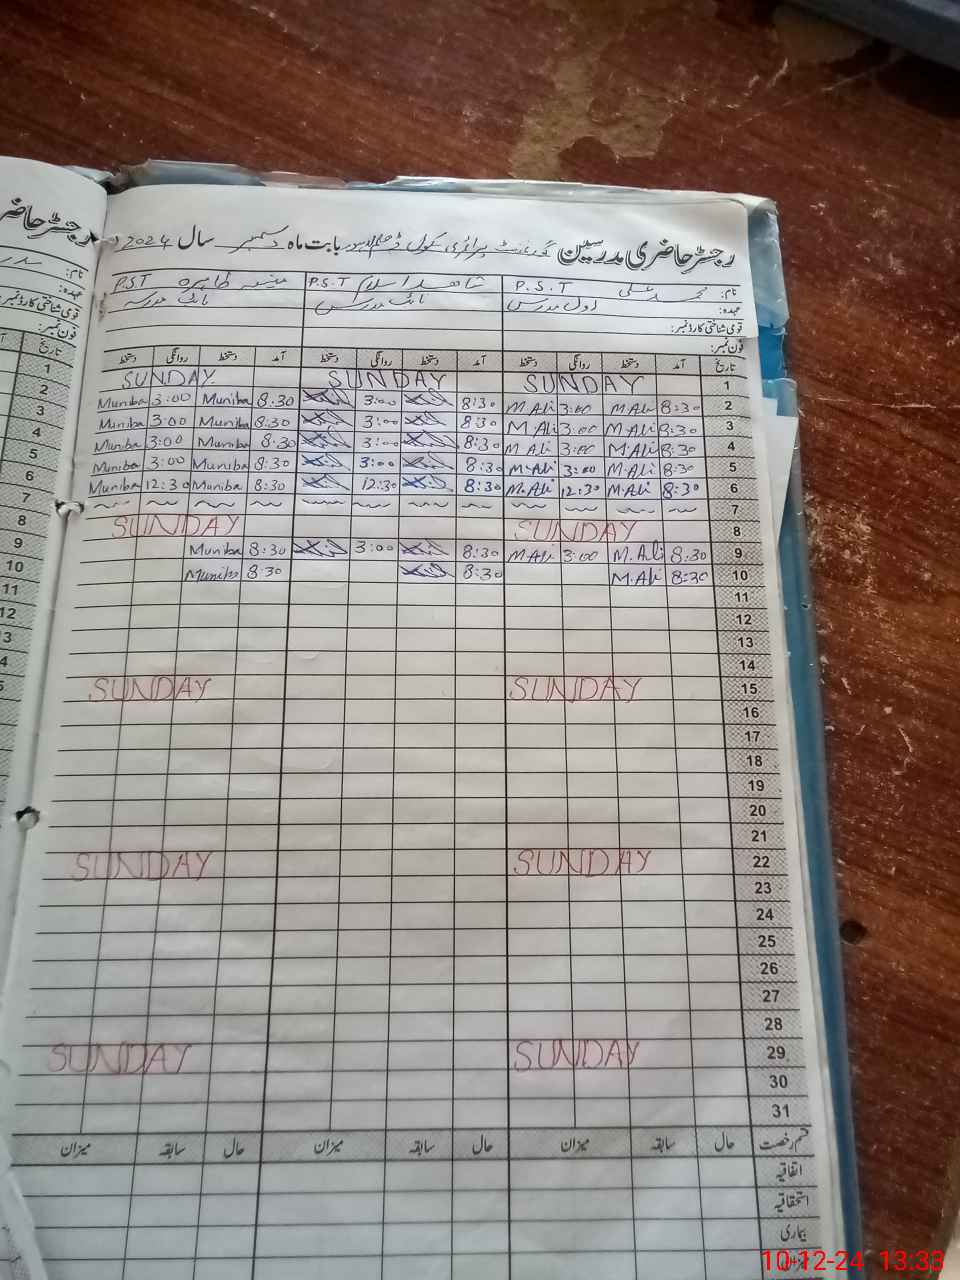 رجسٹر حاضری مدرسین گورنمنٹ پرائمری سکول بابت ماہ دسمبر سال 2024
نام: محمد علی P.S.T شاھد اسلام P.S.T منیبہ طاہرہ P.S.T
عہدہ: اول مدرس نائب مدرس نائب مدرسہ
قومی شناختی کارڈ نمبر:
فون نمبر:
تاریخ آمد دستخط روانگی دستخط آمد دستخط روانگی دستخط آمد دستخط روانگی دستخط
SUNDAY SUNDAY SUNDAY 1
Muniba 3:00 Muniba 8:30 3:00 8:30 M Ali 3:00 M Ali 8:30 2
Muniba 3:00 Muniba 8:30 3:00 8:30 M Ali 3:00 M Ali 8:30 3
Muniba 3:00 Muniba 8:30 3:00 8:30 M Ali 3:00 M Ali 8:30 4
Muniba 3:00 Muniba 8:30 3:00 8:30 M Ali 3:00 M Ali 8:30 5
Muniba 12:30 Muniba 8:30 12:30 8:30 M Ali 12:30 M Ali 8:30 6
7
SUNDAY SUNDAY 8
Muniba 8:30 3:00 8:30 M Ali 3:00 M. Ali 8:30 9
Muniba 8:30 8:30 M Ali 8:30 10
11
12
13
14
SUNDAY SUNDAY 15
16
17
18
19
20
21
SUNDAY SUNDAY 22
23
24
25
26
27
28
SUNDAY SUNDAY 29
30
31
قسم رخصت حال سابقہ میزان حال سابقہ میزان حال سابقہ میزان
اتفاقیہ
استحقاقیہ
بیماری
10-12-24 13:33
رجسٹر حاضر
نام:
عہدہ:
قومی شناختی کارڈ نمبر:
فون نمبر:
تاریخ
1
2
3
4
5
6
7
8
9
10
11
12